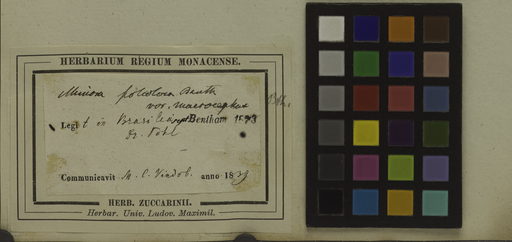 HERBARIUM REGIUM MONACENSE.
Mimosa Benth
var. macrocephala
Legit in Brasilia Bentham
Dr. Pohl
Communicavit M. C. Vindob. anno 1839
HERB. ZUCCARINII.
Herbar. Univ. Ludov. Maximil.